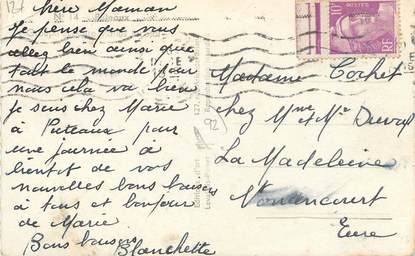 Chère Maman
Je pense que vous
allez bien ainsi que
tout le monde pour
nous cela va bien
Je suis chez Marie
à Puteaux pour
une journée à
bientôt de vos
nouvelles bons baisers
à tous et bonjour
de Marie
Bons baisers
Blanchette
Madame Cochet
chez Mme et Mr Duval
La Madeleine
Nonancourt
Eure
92
POSTES
RF